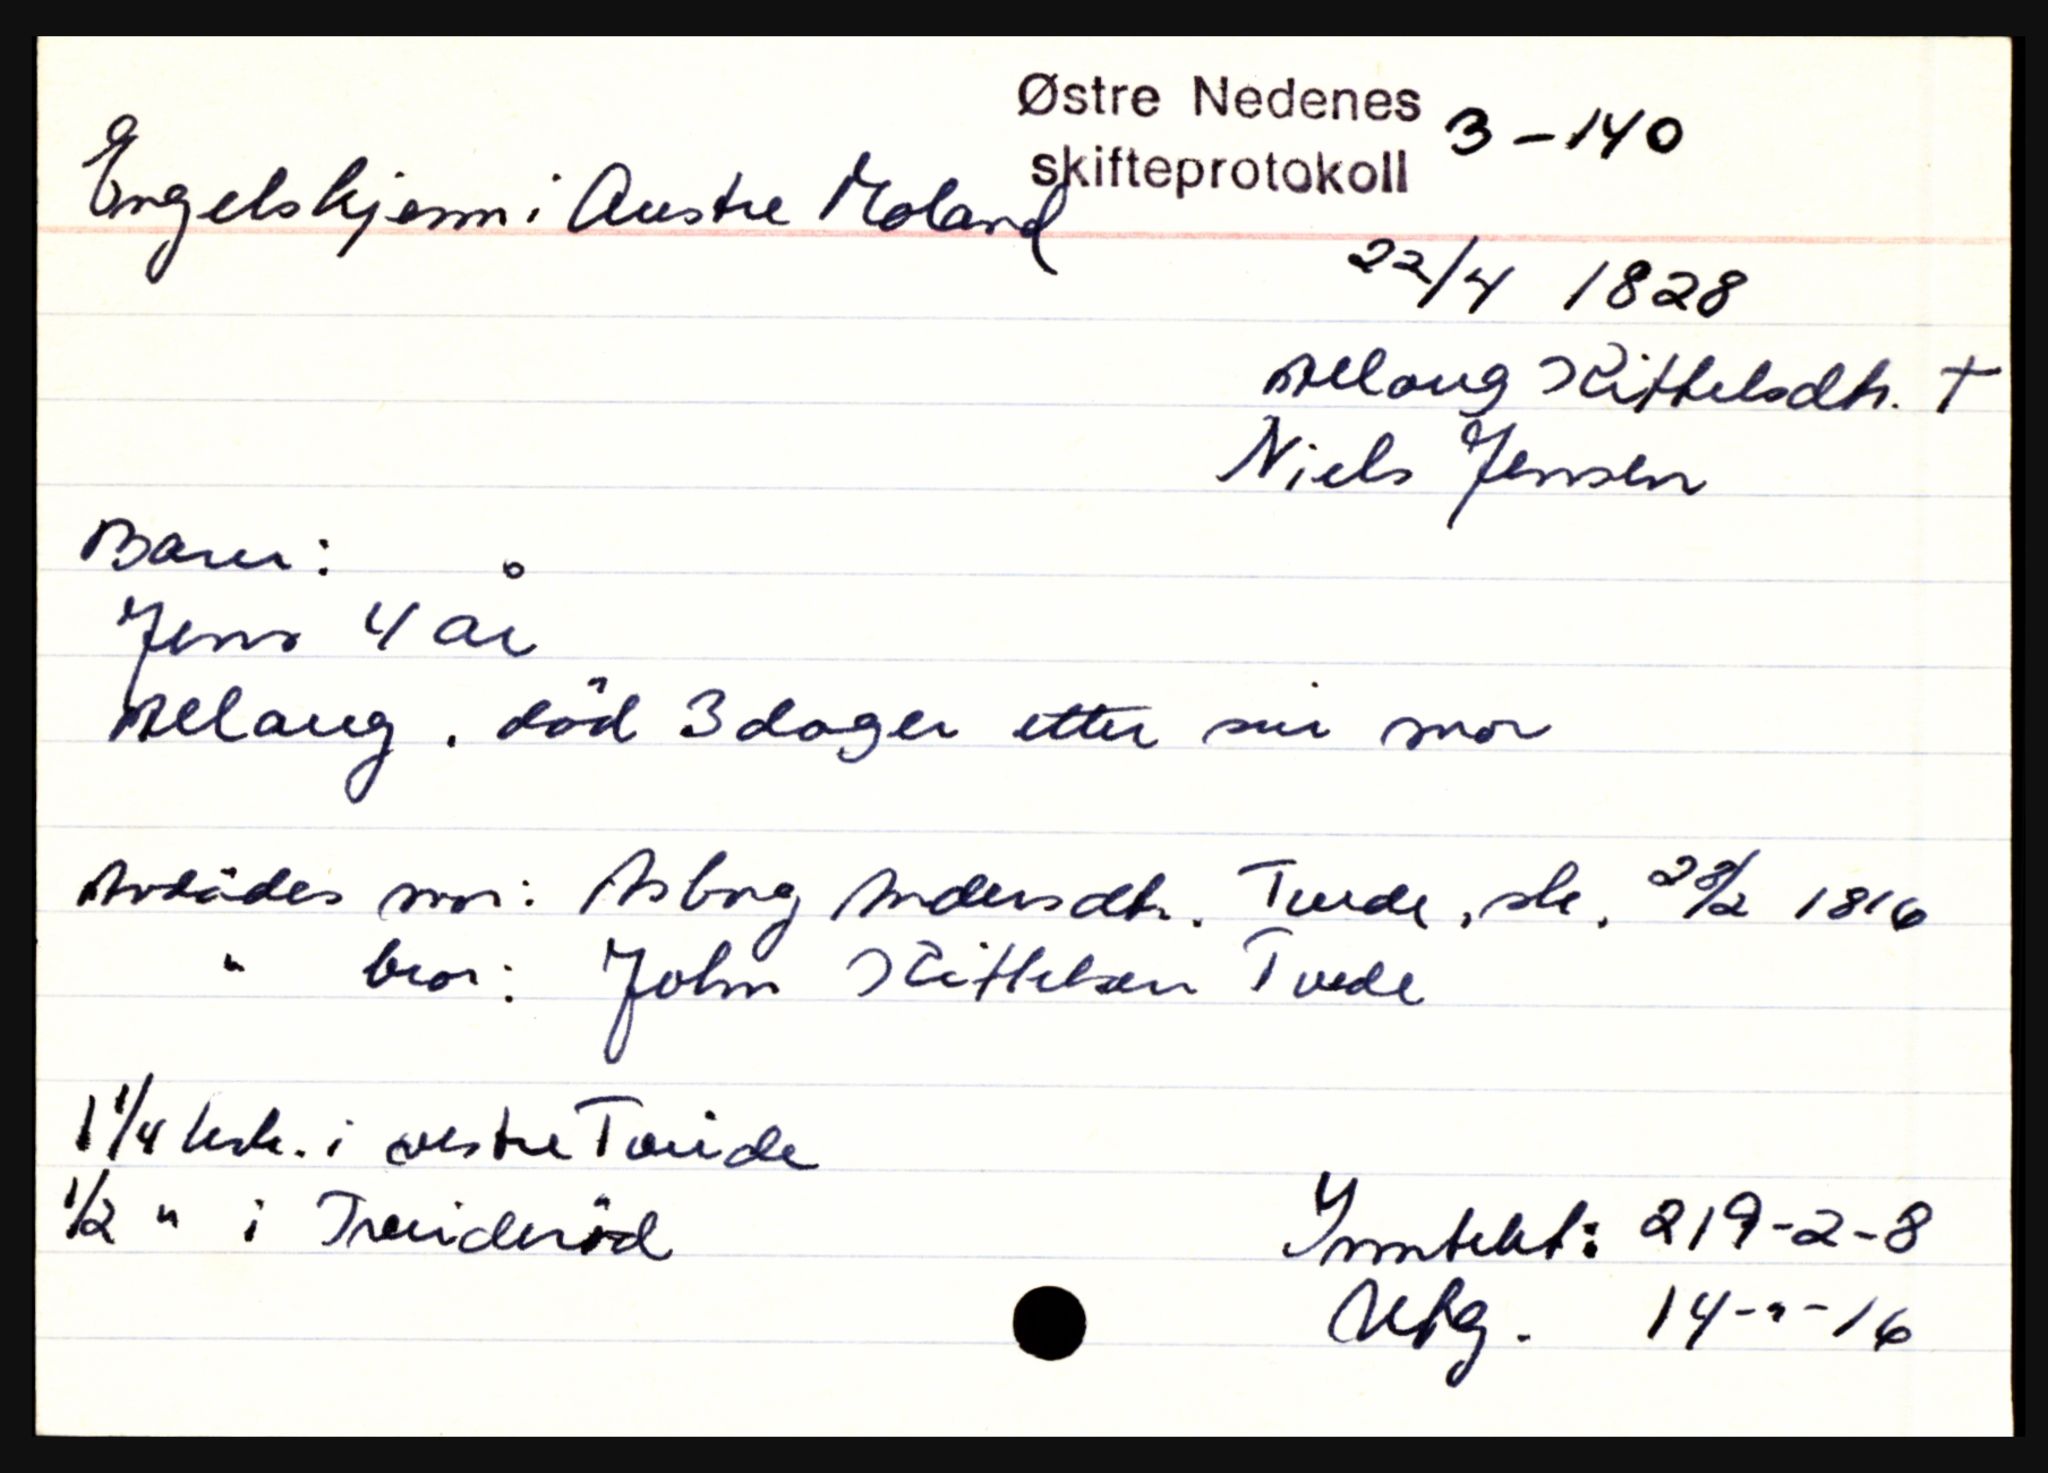 Østre Nedenes
skifteprotokoll 3-140
Engelskjønn i Austre Moland
22/4 1828
Allaug Kittelsdtr. †
Niels Jensen
Barn:
Jens 4 år
Allaug. död 3 dager etter sin mor
Avdödes mor: Asborg Andersdtr. Tvede, sk. 28/2 1816
" bror: John Kittelsen Tvede
1 1/4 hsk. i vestre Tveide
1/2 " i Tveideröd
Inntekt: 219-2-8
Utg. 14-"-16